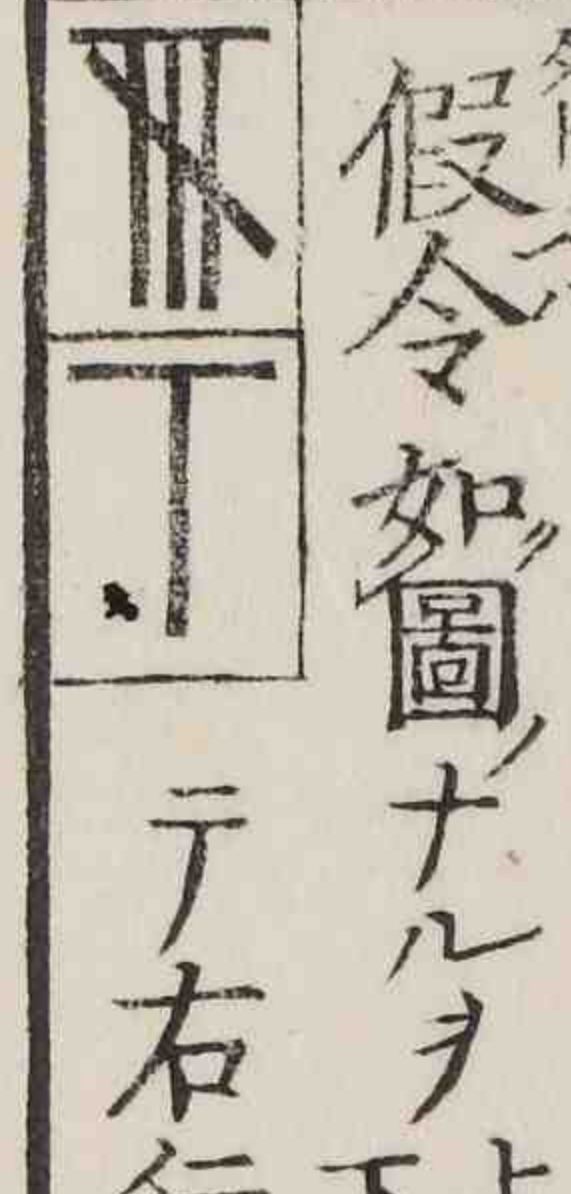 假令如圖ノナルヲ
テ右